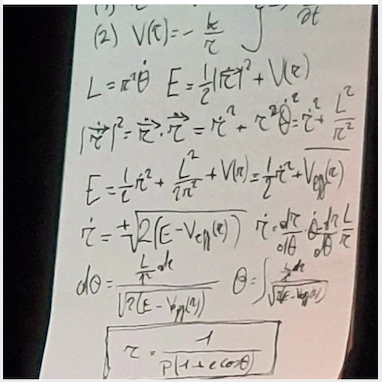 (2) V(r) = - k/r ∂t
L = r²θ̇ E = 1/2|ṙ⃗|² + V(r)
|ṙ⃗|² = ṙ⃗ · ṙ⃗ = ṙ² + r²θ̇² = ṙ² + L²/r²
E = 1/2 ṙ² + L²/2r² + V(r) = 1/2 ṙ² + V_eff(r)
ṙ = ±√2(E - V_eff(r)) ṙ = dr/dθ · θ̇ = dr/dθ L/r
dθ = L/r² dr / √2(E - V_eff(r)) θ = ∫ L/r² dr / √2(E - V_eff(r))
r = 1 / P(1 + e cosθ)